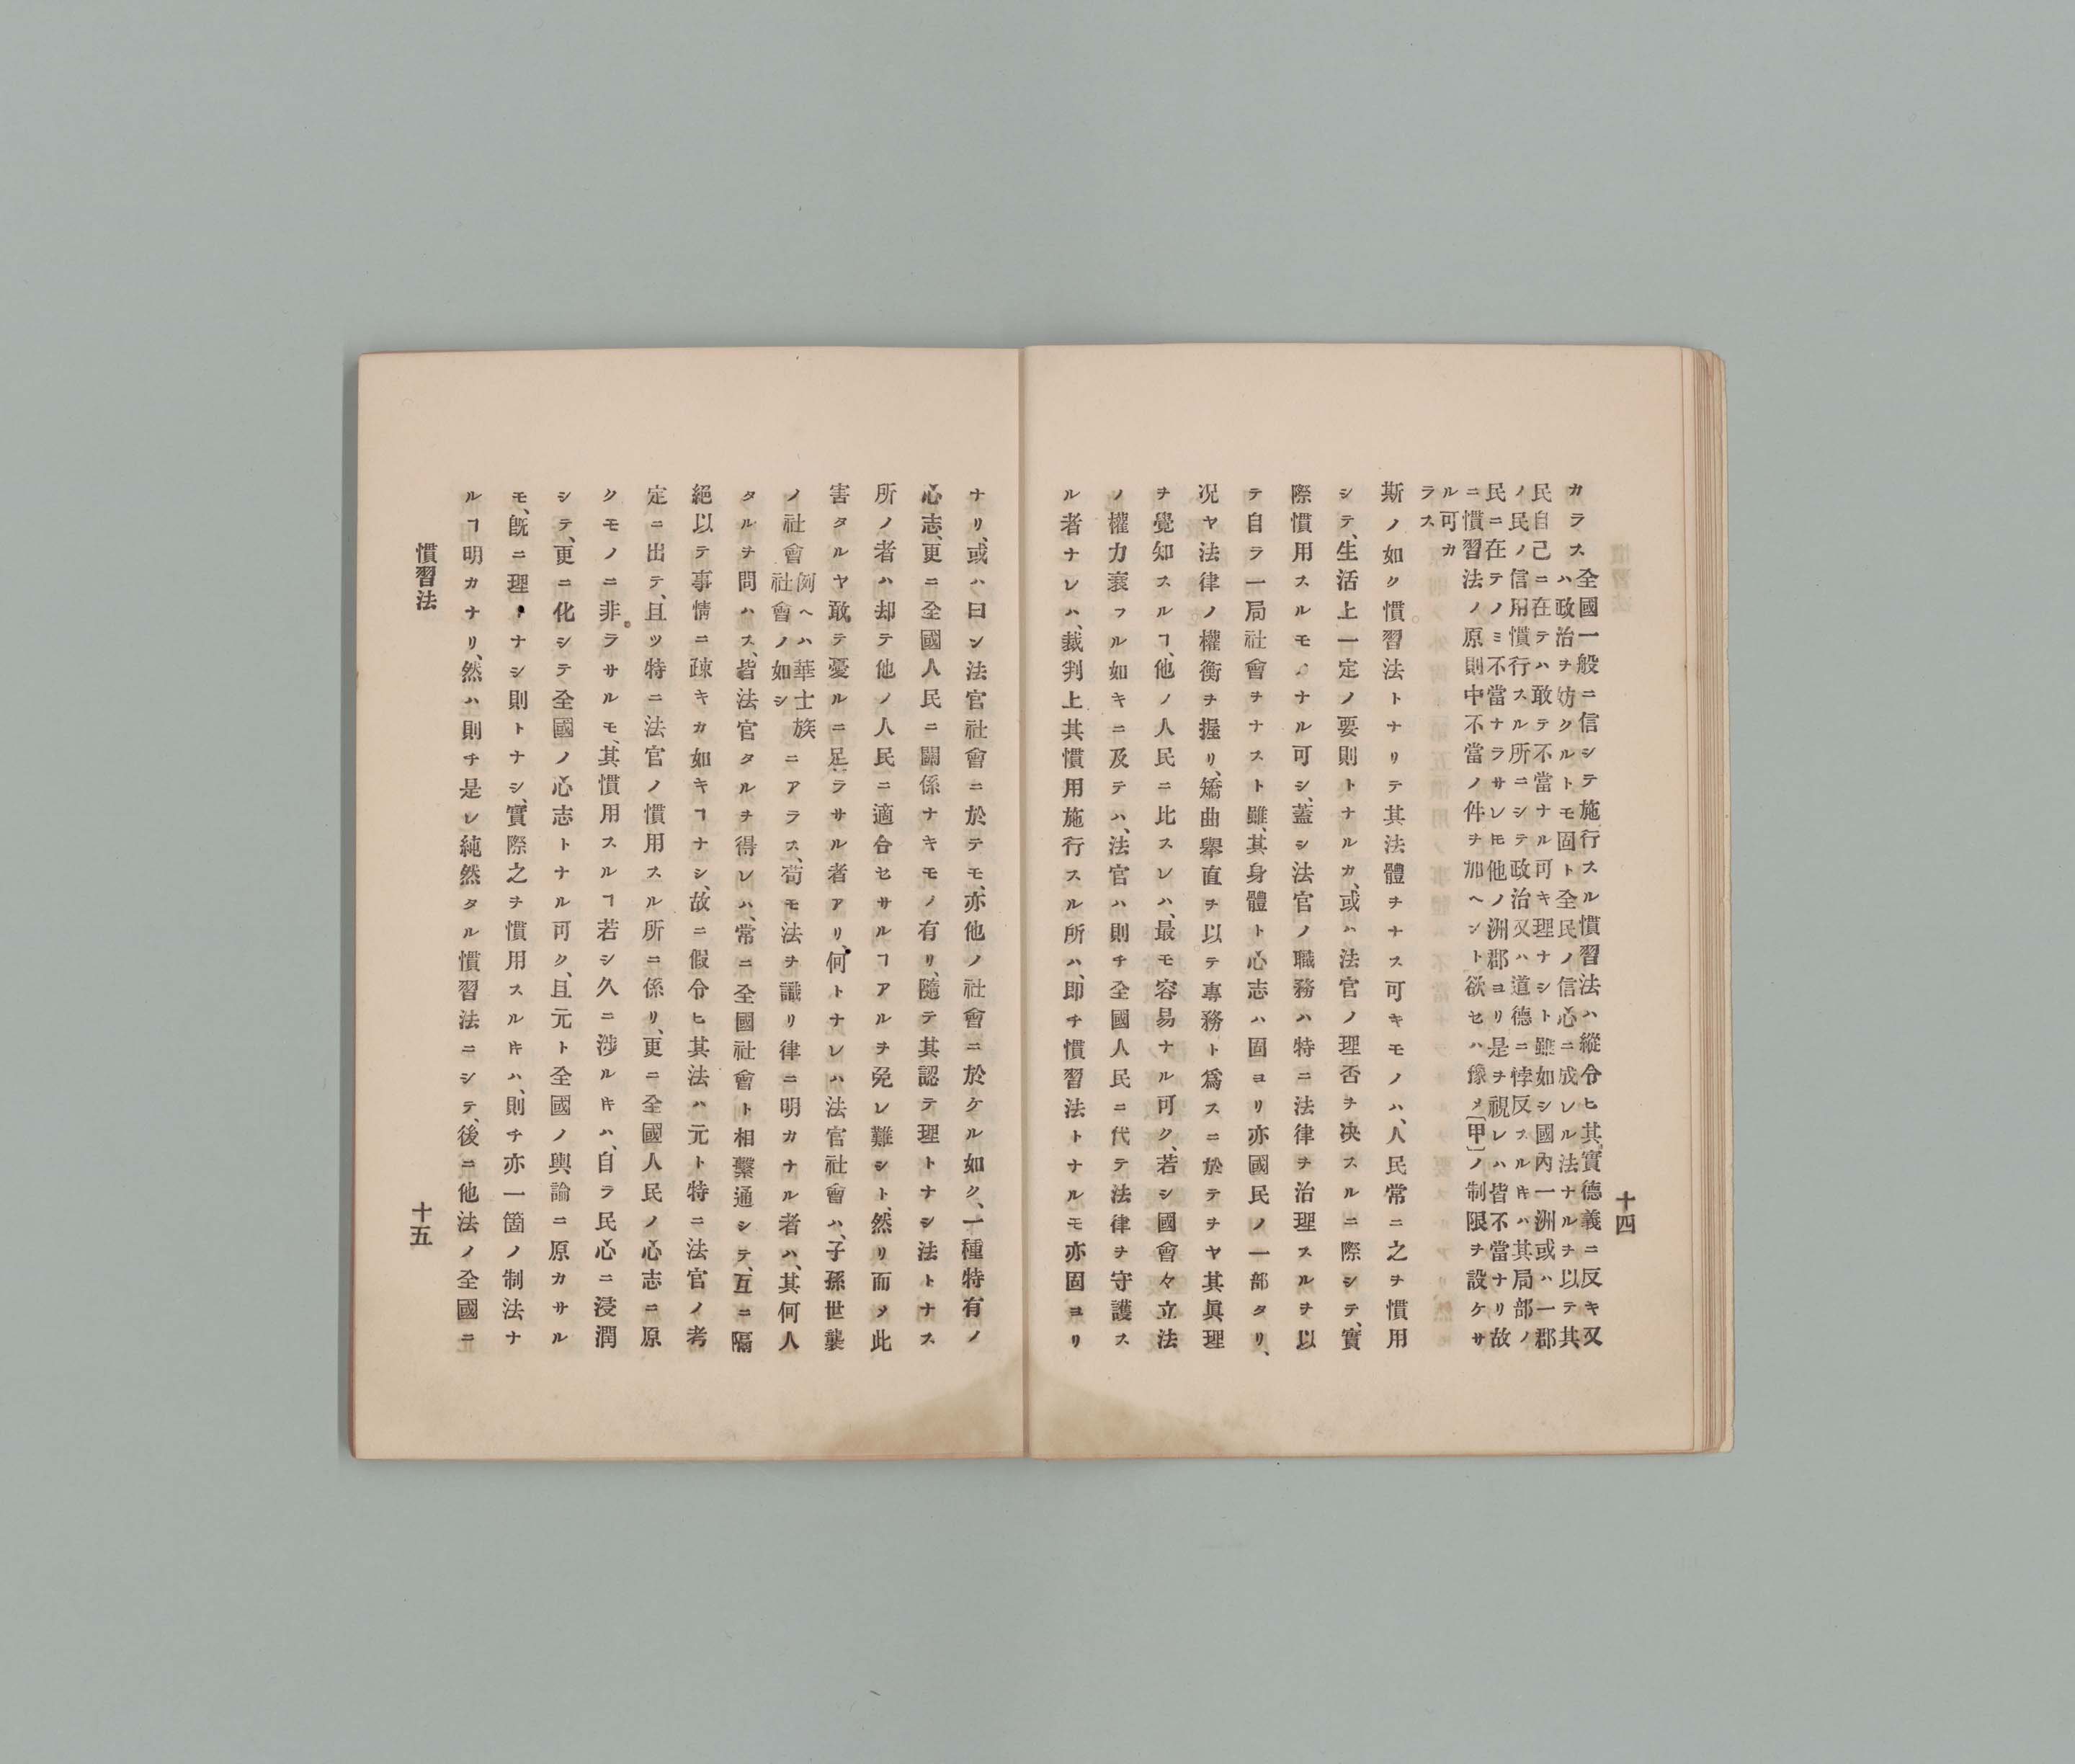 十四
カラス
全國一般ニ信シテ施行スル慣習法ハ縱令ヒ其實德義ニ反キ又
ハ政治ヲ妨クルトモ固ト全民ノ信心ニ成レル法ナルヲ以テ其
民自己ニ在テハ敢テ不當ナル可キ理ナシト雖如シ國內一洲或ハ一郡
ノ民ノ信用慣行スル所ニシテ政治又ハ道德ニ悖反スルトキハ其局部ノ
民ニ在テノミ不當ナラサレ𪜈他ノ洲郡ヨリ是ヲ視レハ皆不當ナリ故
ニ慣習法ノ原則中不當ノ件ヲ加ヘント欲セハ豫メ〔甲〕ノ制限ヲ設ケサ
ル可カ
ラス
斯ノ如ク慣習法トナリテ其法體ヲナス可キモノハ、人民常ニ之ヲ慣用
シテ、生活上一定ノ要則トナルカ、或ハ法官ノ理否ヲ決スルニ際シテ、實
際慣用スルモノナル可シ、蓋シ法官ノ職務ハ特ニ法律ヲ治理スルヲ以
テ自ラ一局社會ヲナスト雖、其身體ト心志ハ固ヨリ亦國民ノ一部タリ、
况ヤ法律ノ權衡ヲ握リ、矯曲舉直ヲ以テ專務ト爲スニ於テヲヤ其眞理
ヲ覺知スルヿ、他ノ人民ニ比スレハ、最モ容易ナル可ク、若シ國會々立法
ノ權力衰フル如キニ及テハ、法官ハ則チ全國人民ニ代テ法律ヲ守護ス
ル者ナレハ、裁判上其慣用施行スル所ハ、即チ慣習法トナルモ亦固ヨリ
ナリ、或ハ曰ン法官社會ニ於テモ、亦他ノ社會ニ於ケル如ク、一種特有ノ
心志、更ニ全國人民ニ關係ナキモノ有リ、隨テ其認テ理トナシ法トナス
所ノ者ハ却テ他ノ人民ニ適合セサルヿアルヲ免レ難シト、然リ而〆此
害タルヤ敢テ憂ルニ足ラサル者アリ、何トナレハ法官社會ハ、子孫世襲
ノ社會
例ヘハ華士族
社會ノ如シ
ニアラス、苟モ法ヲ識リ律ニ明カナル者ハ、其何人
タルヲ問ハス、皆法官タルヲ得レハ、常ニ全國社會ト相繫通シテ、互ニ隔
絕以テ事情ニ疎キカ如キヿナシ、故ニ假令ヒ其法ハ元ト特ニ法官ノ考
定ニ出テ、且ツ特ニ法官ノ慣用スル所ニ係リ、更ニ全國人民ノ心志ニ原
クモノニ非ラサルモ、其慣用スルヿ若シ久ニ涉ルトキハ、自ラ民心ニ浸潤
シテ、更ニ化シテ全國ノ心志トナル可ク、且元ト全國ノ輿論ニ原カサル
モ、旣ニ理トナシ則トナシ、實際之ヲ慣用スルトキハ、則チ亦一箇ノ制法ナ
ルヿ明カナリ、然ハ則チ是レ純然タル慣習法ニシテ、後ニ他法ノ全國ニ
慣習法
十五